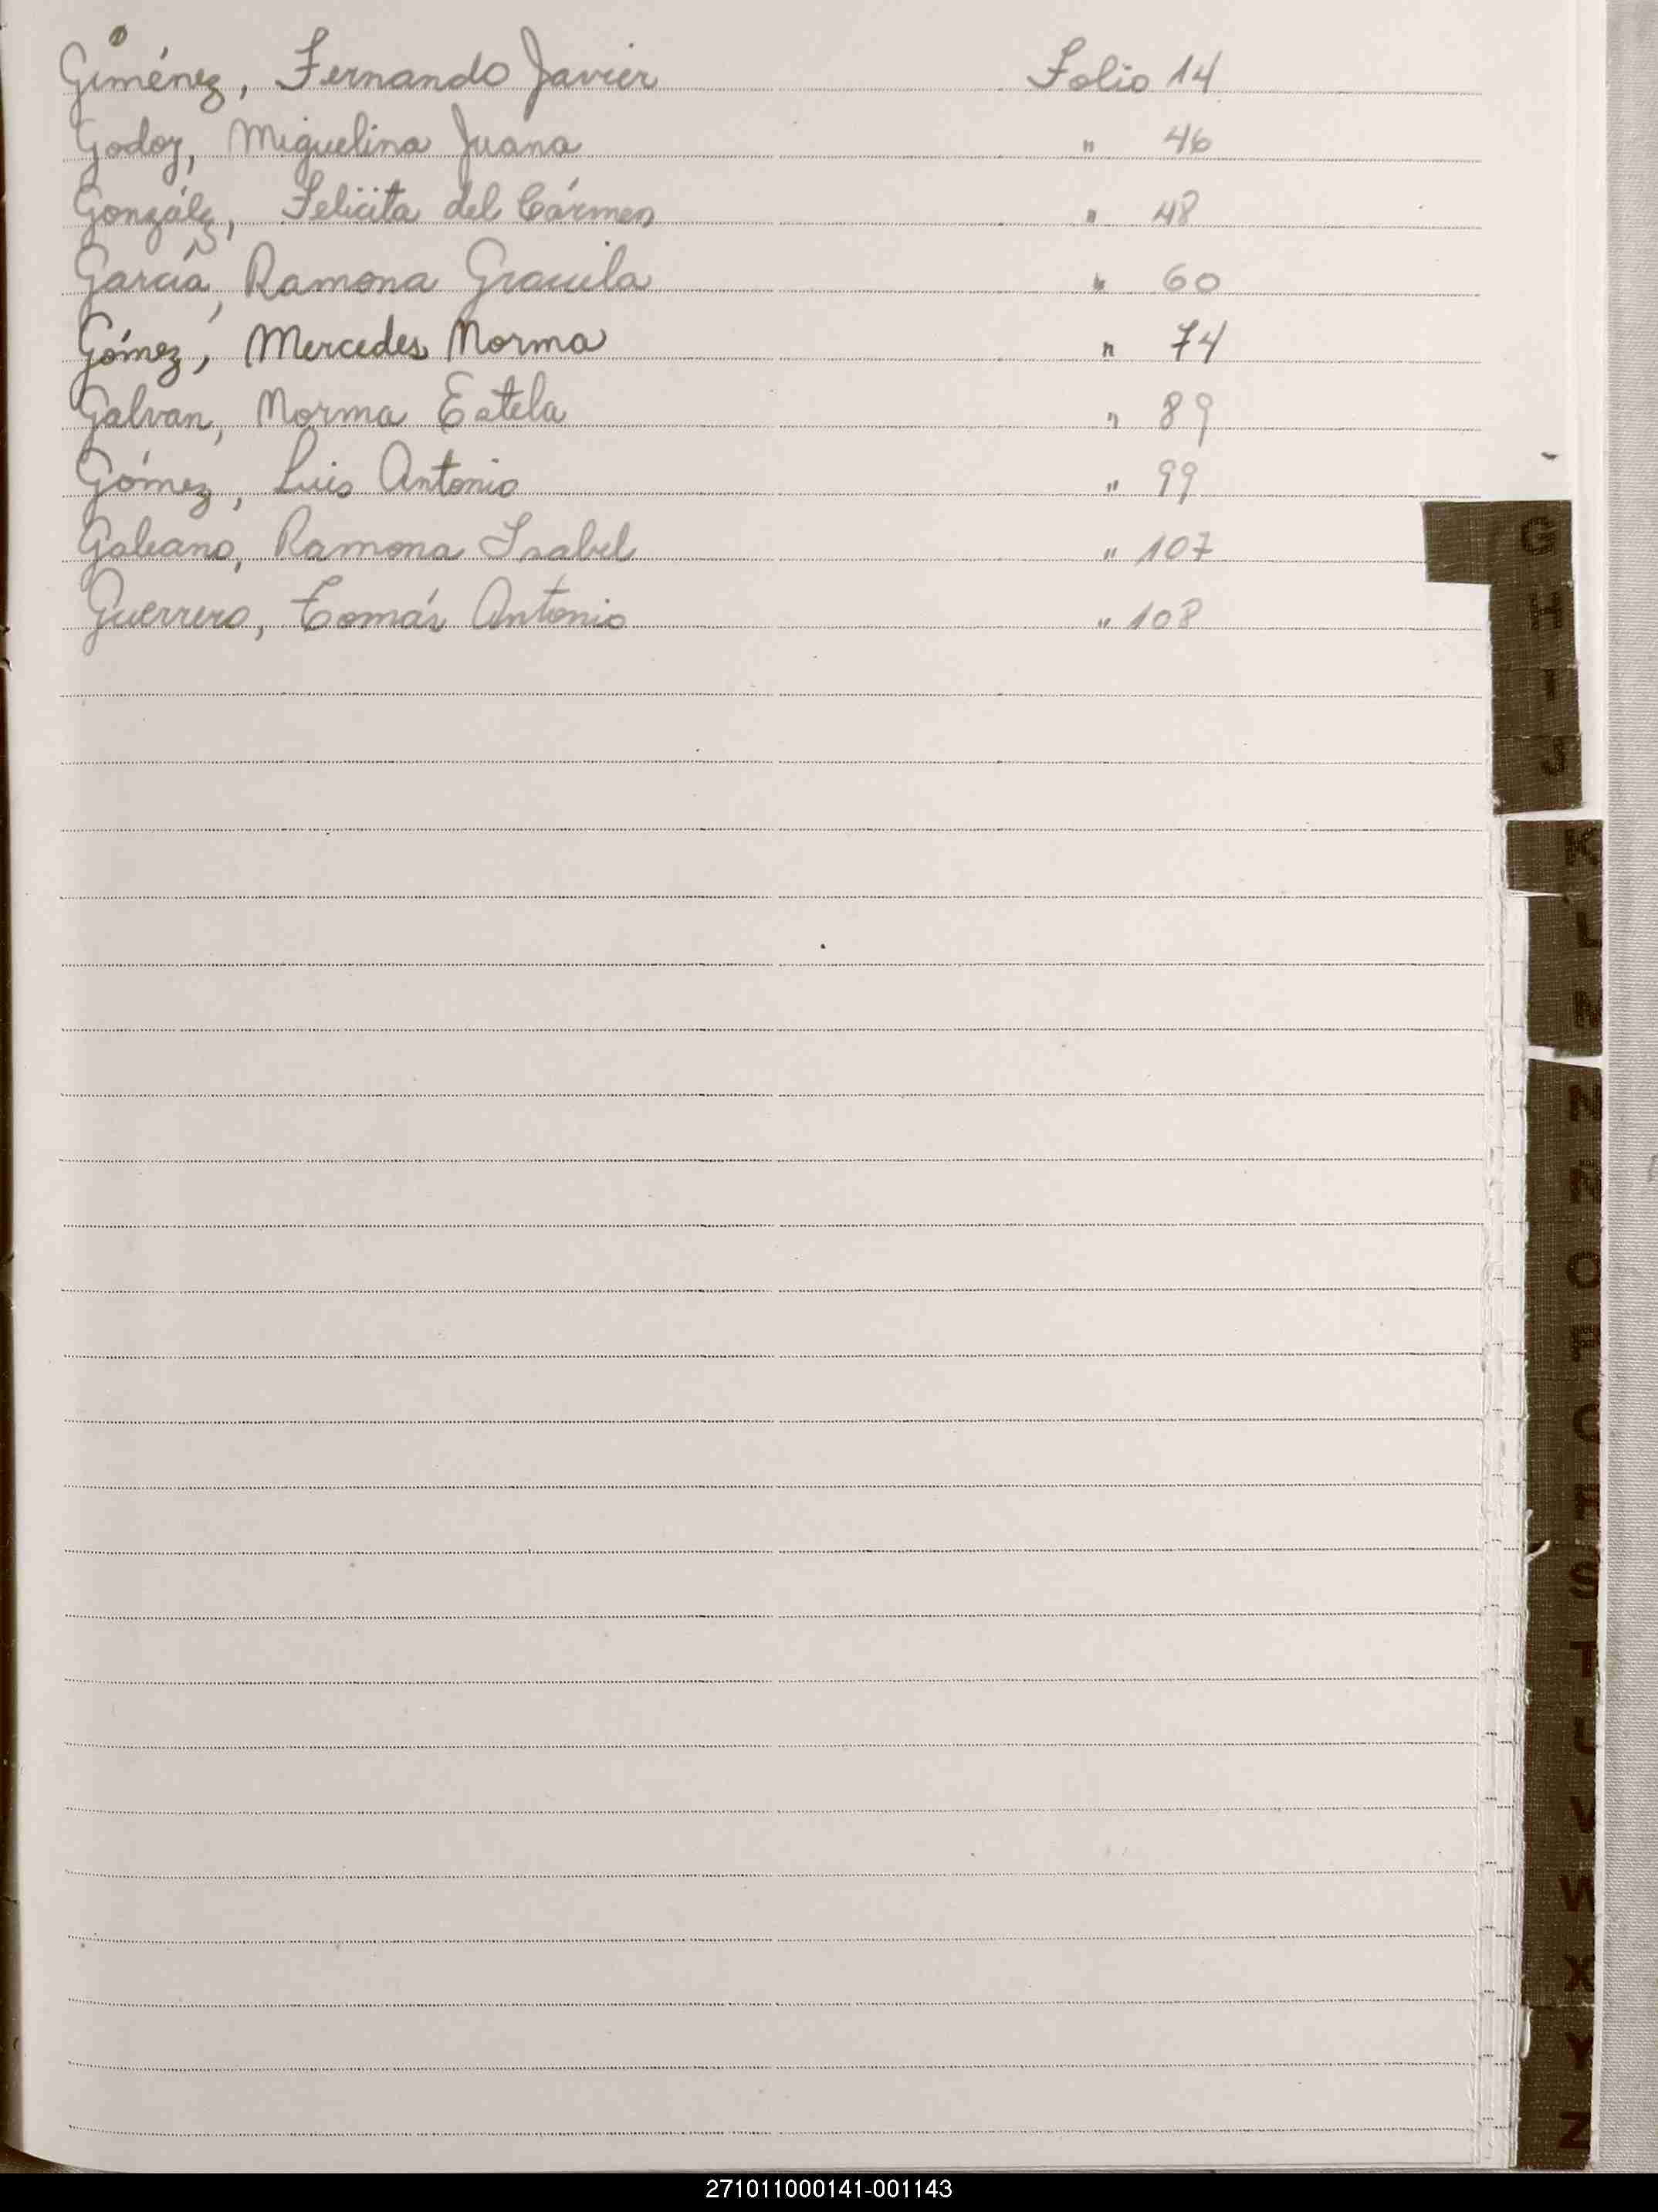 Giménez, Fernando Javier Folio 14
Godoy, Miguelina Juana " 46
Gonzálz, Feliciita del Cármen " 48
García, Ramona Graciela " 60
Gómez, Mercedes Norma " 74
Galvan, Norma Estela " 89
Gómez, Luis Antonio " 99
Galeano, Ramona Isabel " 107
Guerrero, Tomás Antonio " 108
G
H
I
J
K
L
M
N
Ñ
O
P
Q
R
S
T
U
V
W
X
Y
Z
271011000141-001143